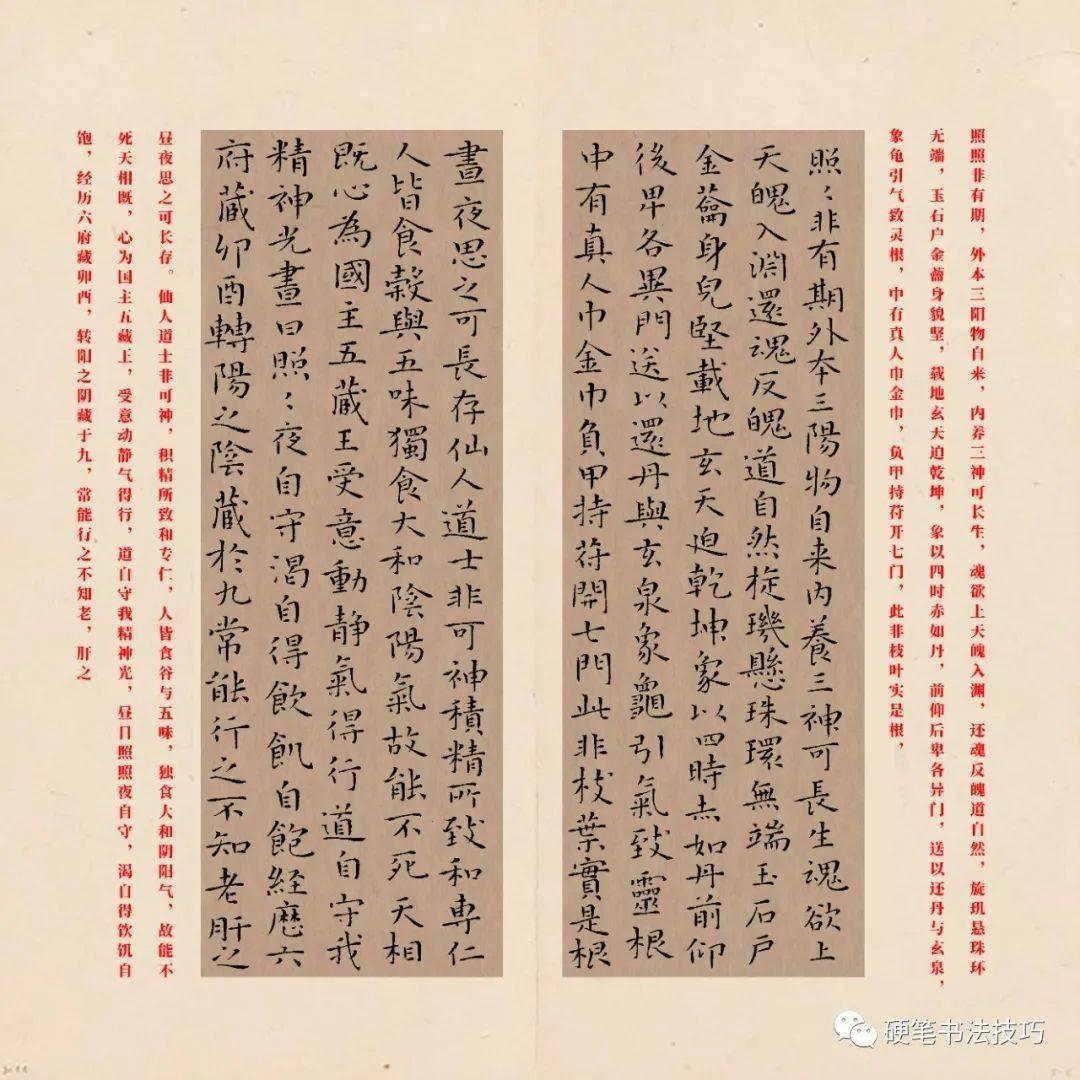 照照非有期，外本三阳物自来，内养三神可长生，魂欲上天魄入渊，还魂反魄道自然，旋玑悬珠环
无端，玉石户金蕾身貌坚，载地玄天迫乾坤，象以四时赤如丹，前仰后卑各异门，送以还丹与玄泉，
象龟引气致灵根，中有真人巾金巾，负甲持苻开七门，此非枝叶实是根，
照〻非有期外本三陽物自来内養三神可長生魂欲上
天魄入淵還魂反魄道自然㨁璣懸珠環無端玉石戶
金蘥身皃堅載地玄天迫乾坤象以四時赤如丹前仰
後卑各異門送以還丹與玄泉象龜引氣致靈根
中有真人巾金巾負甲持苻開七門此非枝葉實是根
晝夜思之可長存仙人道士非可神積精所致和專仁
人皆食穀與五味獨食大和陰陽氣故能不死天相
既心為國主五藏王受意動静氣得行道自守我
精神光晝日照〻夜自守渴自得飲飢自飽經歷六
府藏卯酉轉陽之陰藏於九常能行之不知老肝之
昼夜思之可长存。仙人道士非可神，积精所致和专仁，人皆食谷与五味，独食大和阴阳气，故能不
死天相既，心为国主五藏王，受意动静气得行，道自守我精神光，昼日照照夜自守，渴自得饮饥自
饱，经历六府藏卯酉，转阳之阴藏于九，常能行之不知老，肝之
硬笔书法技巧